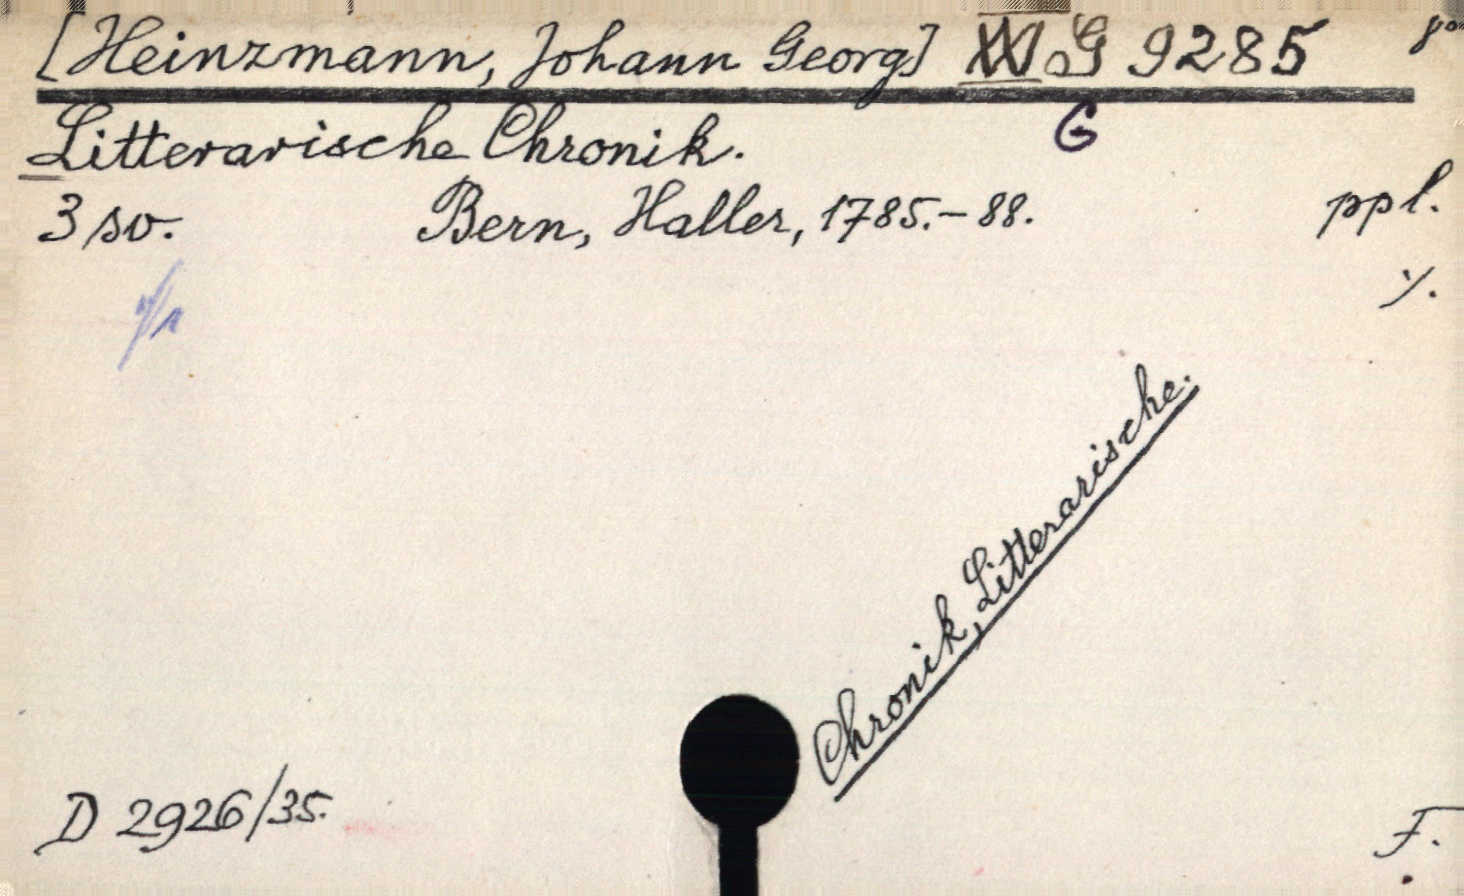 [Heinzmann, Johann Georg] W G 9285 8°
G
Litterarische Chronik.
3 sv. Bern, Haller, 1785.-88. ppl.
·/.
Chronik, Litterarische.
D 2926/35.
F.